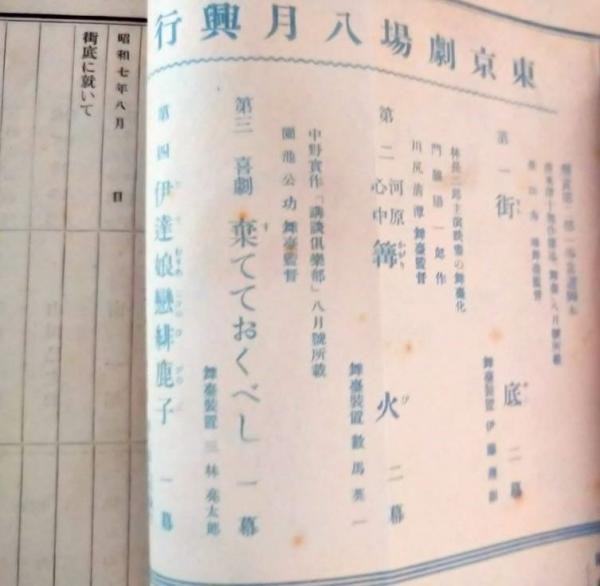 東京劇場八月興行
第一 街底 二幕
舞臺裝置 伊藤
林長二郎主演映畫の舞臺化
門脇陽一郎作
川尻清潭 舞臺監督
第二 河原心中 篝火 二幕
かがり び
舞臺裝置 數馬英一
中野實作「講談倶樂部」八月號所載
園池公功 舞臺監督
第三 喜劇 棄てておくべし 一幕
す
舞臺裝置 三林亮太郎
第四 伊達娘戀緋鹿子 一幕
昭和七年八月 日
街底に就いて